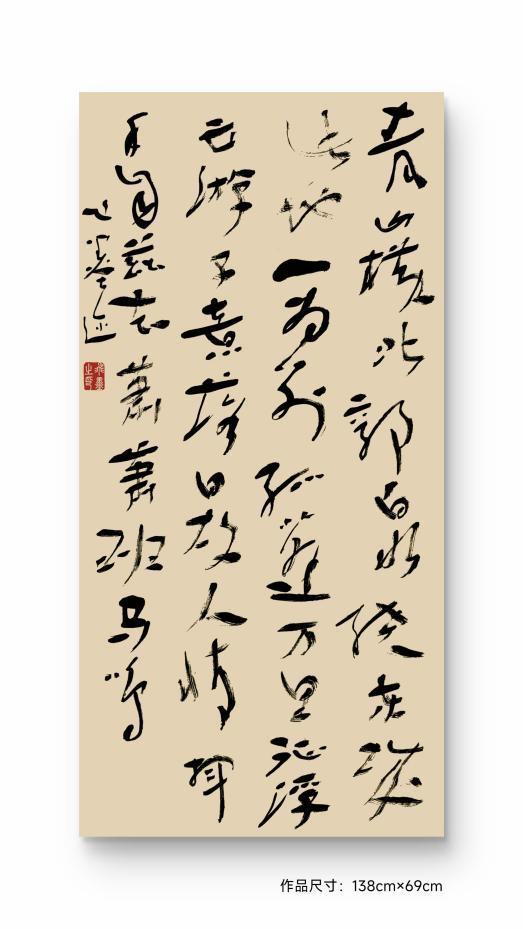 青山横北郭白水绕东城
此地一为别孤蓬万里征浮
云游子意落日故人情挥
手自兹去萧萧班马鸣
作品尺寸：138cm×69cm